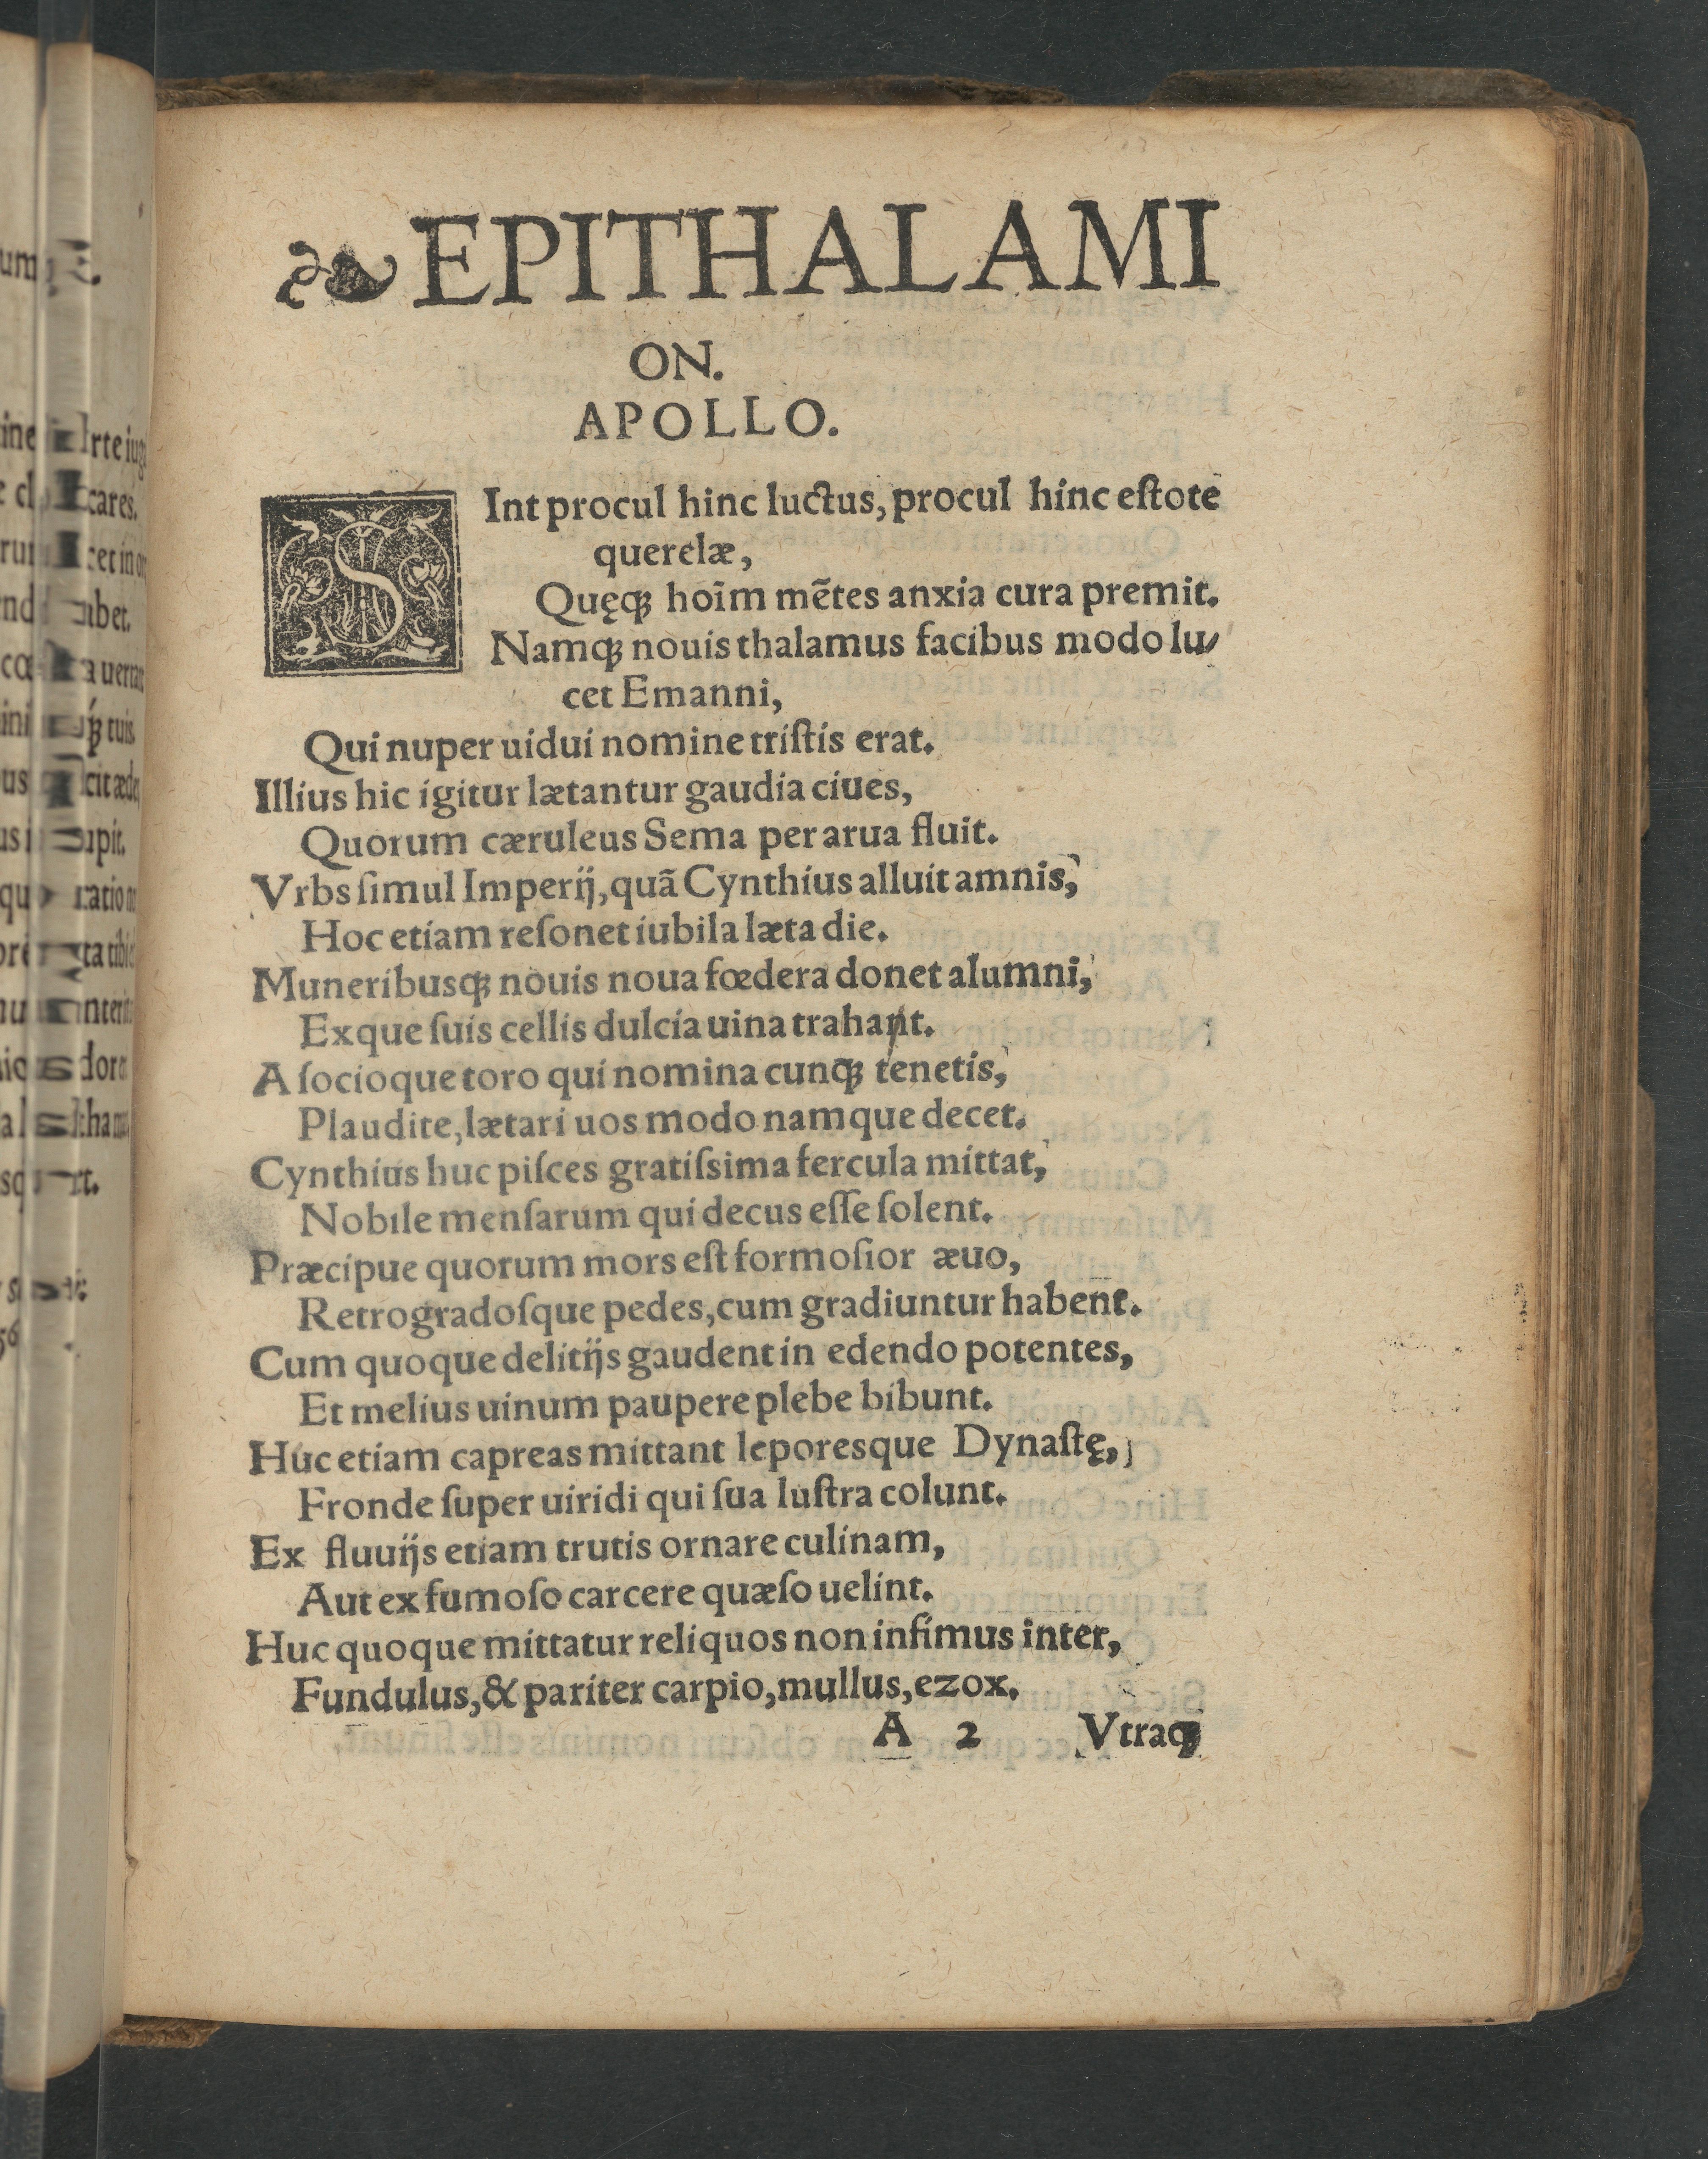 ❧EPITHALAMI
ON.
APOLLO.
SInt procul hinc luctus, procul hinc eſtote
querelæ,
Quęq; hoīm mētes anxia cura premit.
Namq; nouis thalamus facibus modo lu⸗
cet Emanni,
Qui nuper uidui nomine triſtis erat.
Illius hic igitur lætantur gaudia ciues,
Quorum cæruleus Sema per arua fluit.
Vrbs ſimul Imperij, quã Cynthius alluit amnis,
Hoc etiam reſonet iubila læta die.
Muneribusq; nouis noua fœdera donet alumni,
Exque ſuis cellis dulcia uina trahant.
A ſocioque toro qui nomina cunq; tenetis,
Plaudite, lætari uos modo namque decet.
Cynthius huc piſces gratiſsima fercula mittat,
Nobile menſarum qui decus eſſe ſolent.
Præcipue quorum mors eſt formoſior æuo,
Retrogradoſque pedes, cum gradiuntur habent.
Cum quoque delitijs gaudent in edendo potentes,
Et melius uinum paupere plebe bibunt.
Huc etiam capreas mittant leporesque Dynaſtę,
Fronde ſuper uiridi qui ſua luſtra colunt.
Ex fluuijs etiam trutis ornare culinam,
Aut ex fumoſo carcere quæſo uelint.
Huc quoque mittatur reliquos non infimus inter,
Fundulus, & pariter carpio, mullus, ezox.
A 2 Vtraq;